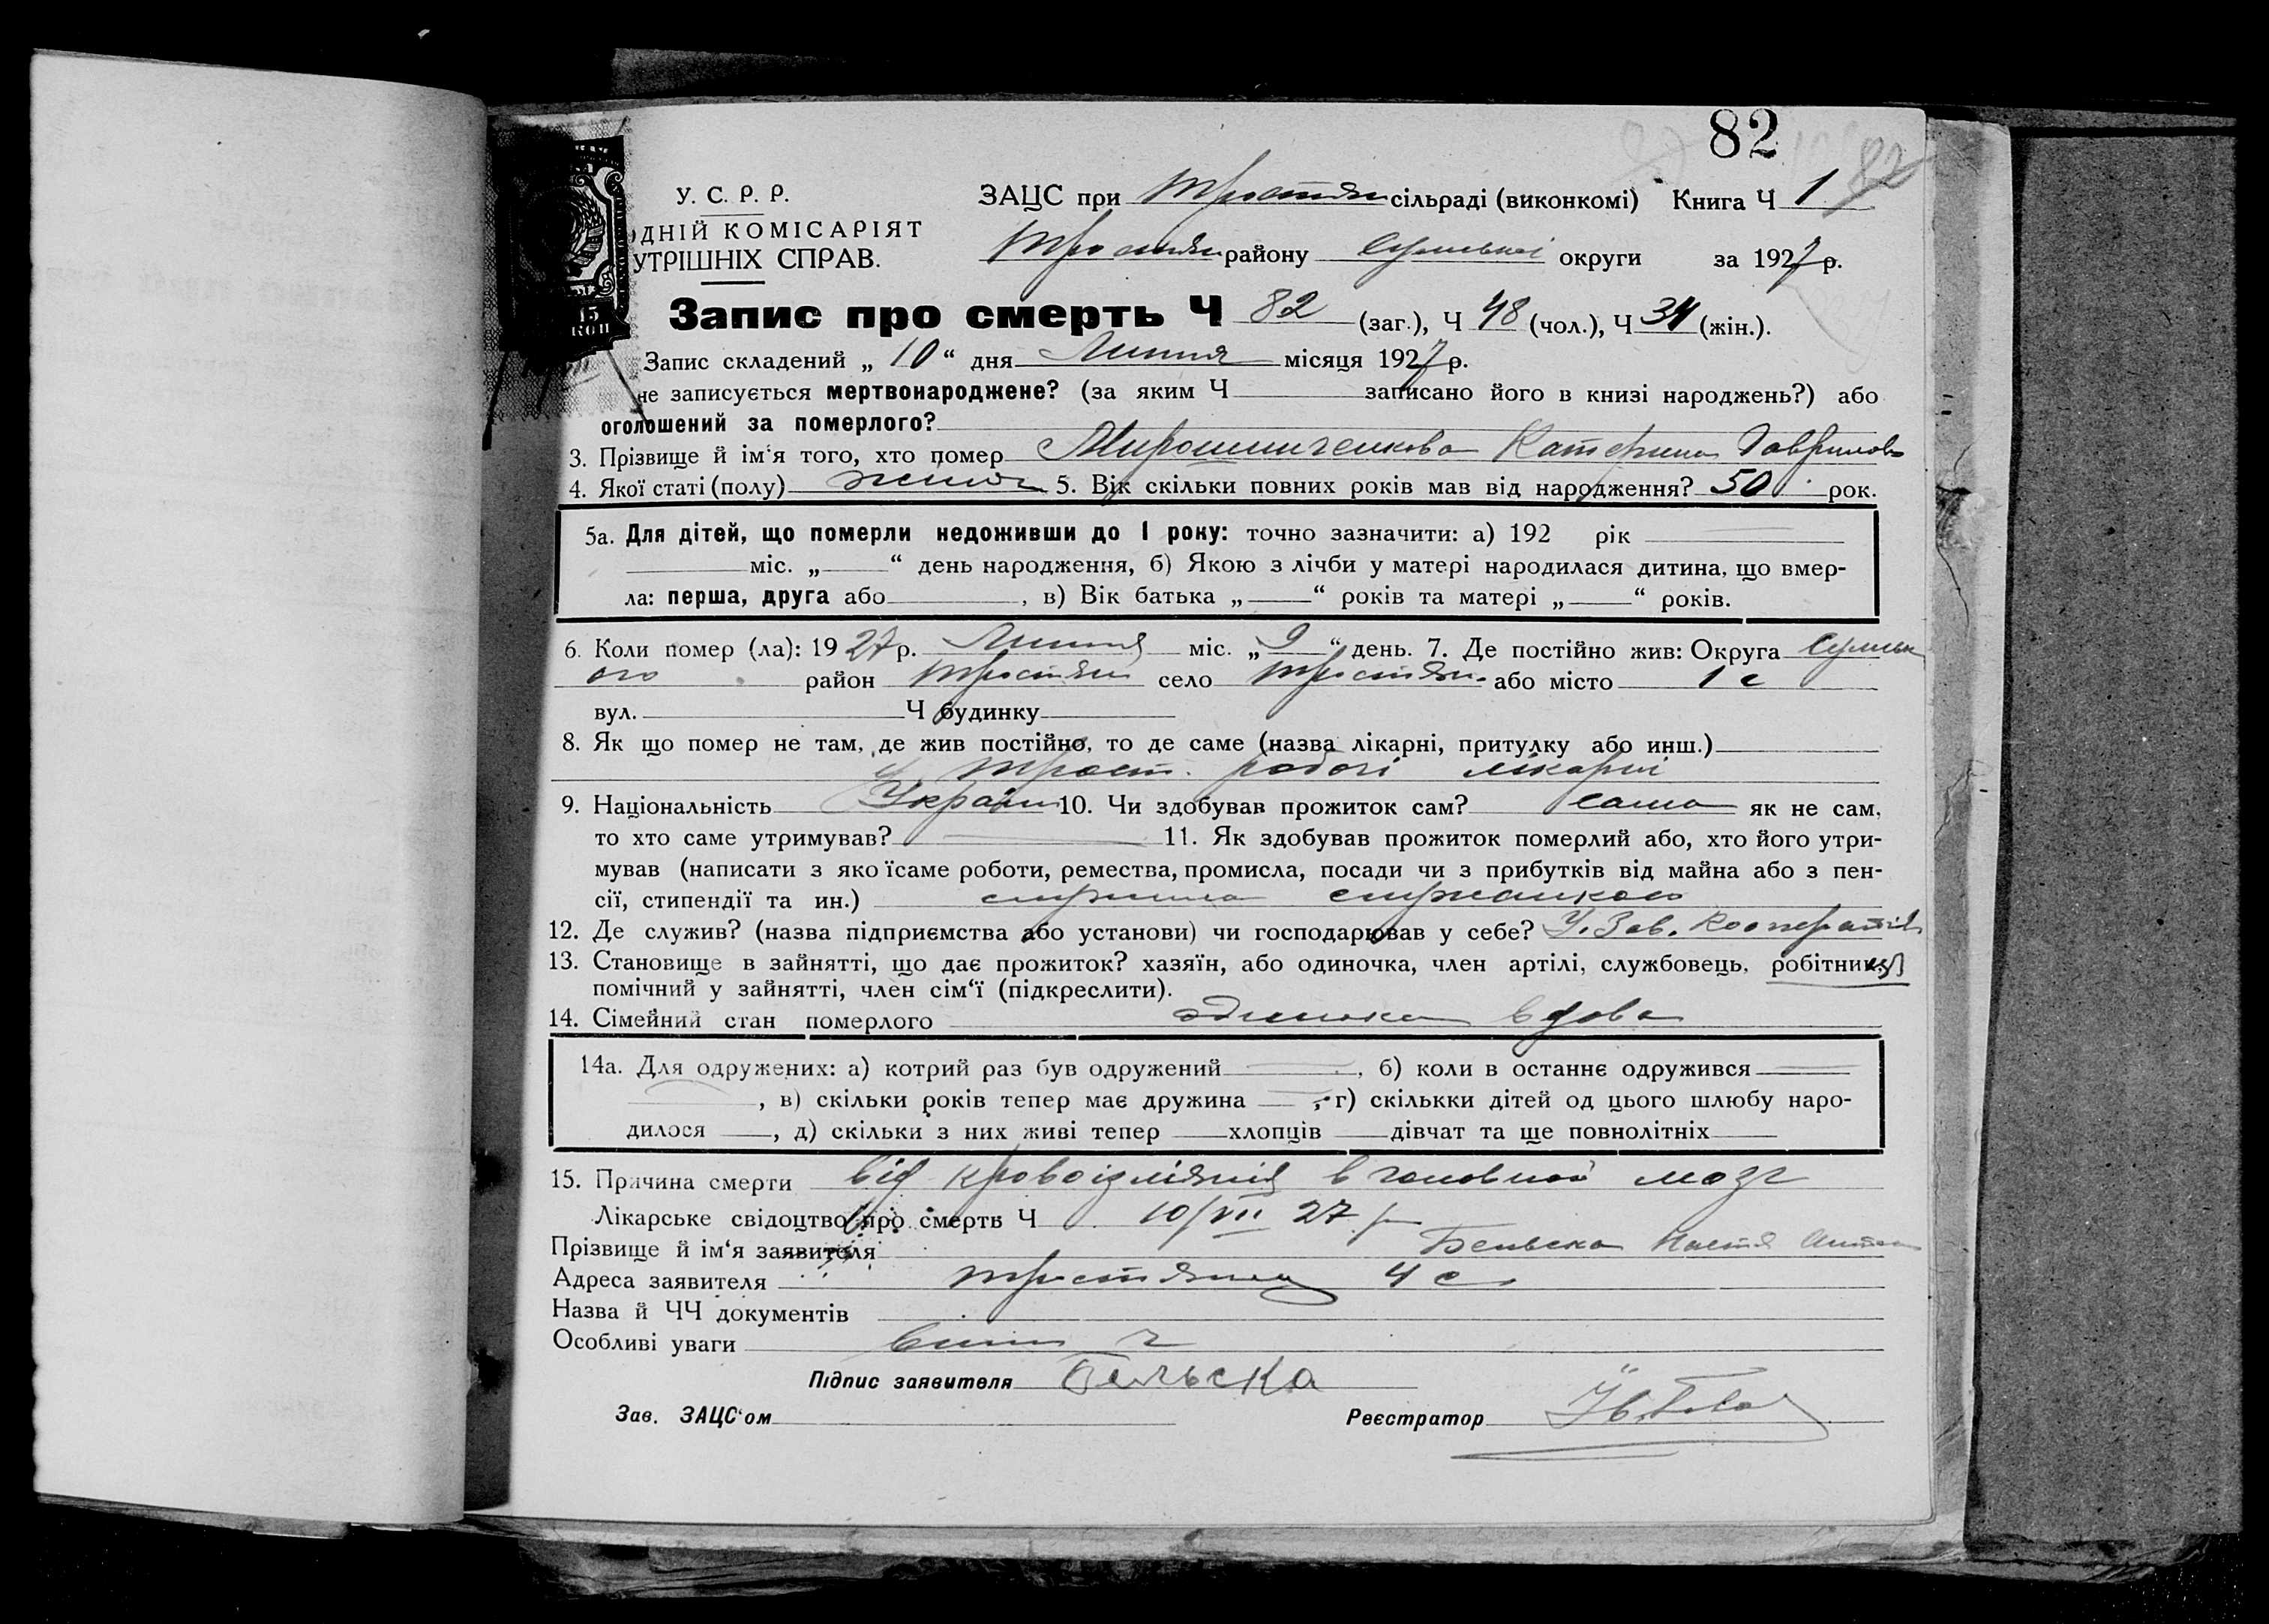 82
82
У. С. Р. Р.
ДНІЙ КОМІСАРІЯТ
УТРІШНІХ СПРАВ.
15
КОП
ЗАЦС при Тростян сільраді (виконкомі) Книга Ч 1
Тростян району Сумської округи за 1927 р.
Запис про смерть Ч 82 (заг.), Ч 48 (чол.), Ч 34 (жін.).
Запис складений „ 10 “ дня Липня місяця 1927 р.
не записується мертвонароджене? (за яким Ч записано його в книзі народжень?) або
оголошений за померлого?
3. Прізвище й ім‘я того, хто помер Мирошниченкова Катерина Гаврилов
4. Якої статі (полу) жіноч 5. Вік скільки повних років мав від народження? 50 рок.
5а. Для дітей, що померли недоживши до 1 року: точно зазначити: а) 192 рік
міс. „ “ день народження, б) Якою з лічби у матері народилася дитина, що вмер-
ла: перша, друга або , в) Вік батька „ “ років та матері „ “ років.
6. Коли помер (ла): 1927 р. Липня міс. „ 9 “ день. 7. Де постійно жив: Округа Сумськ
ого район Тростян село Тростян. або місто 1 с
вул. Ч будинку
8. Як що помер не там, де жив постійно, то де саме (назва лікарні, притулку або инш.)
у Трост. робочі лікарні
9. Національність Україн 10. Чи здобував прожиток сам? сама як не сам,
то хто саме утримував? 11. Як здобував прожиток померлий або, хто його утри-
мував (написати з яко їсаме роботи, ремества, промисла, посади чи з прибутків від майна або з пен-
сії, стипендії та ин.) служила служанкою
12. Де служив? (назва підприємства або установи) чи господарював у себе? У. Зав. Кооператив
13. Становище в зайнятті, що дає прожиток? хазяїн, або одиночка, член артілі, службовець, робітниця
помічний у зайнятті, член сім‘ї (підкреслити).
14. Сімейний стан померлого одинока вдова
14а. Для одружених: а) котрий раз був одружений , б) коли в останнє одружився
, в) скільки років тепер має дружина , г) скількки дітей од цього шлюбу наро-
дилося , д) скільки з них живі тепер хлопців дівчат та ще повнолітніх
15. Причина смерти від кровоізліянія в головной мозг
Лікарське свідоцтво про смерть Ч 10/VII 27 р
Прізвище й ім‘я заявителя Бельска Настя
Адреса заявителя Тростянец 4 с
Назва й ЧЧ документів
Особливі уваги
Підпис заявителя Бельска
Зав. ЗАЦС‘ом Реєстратор